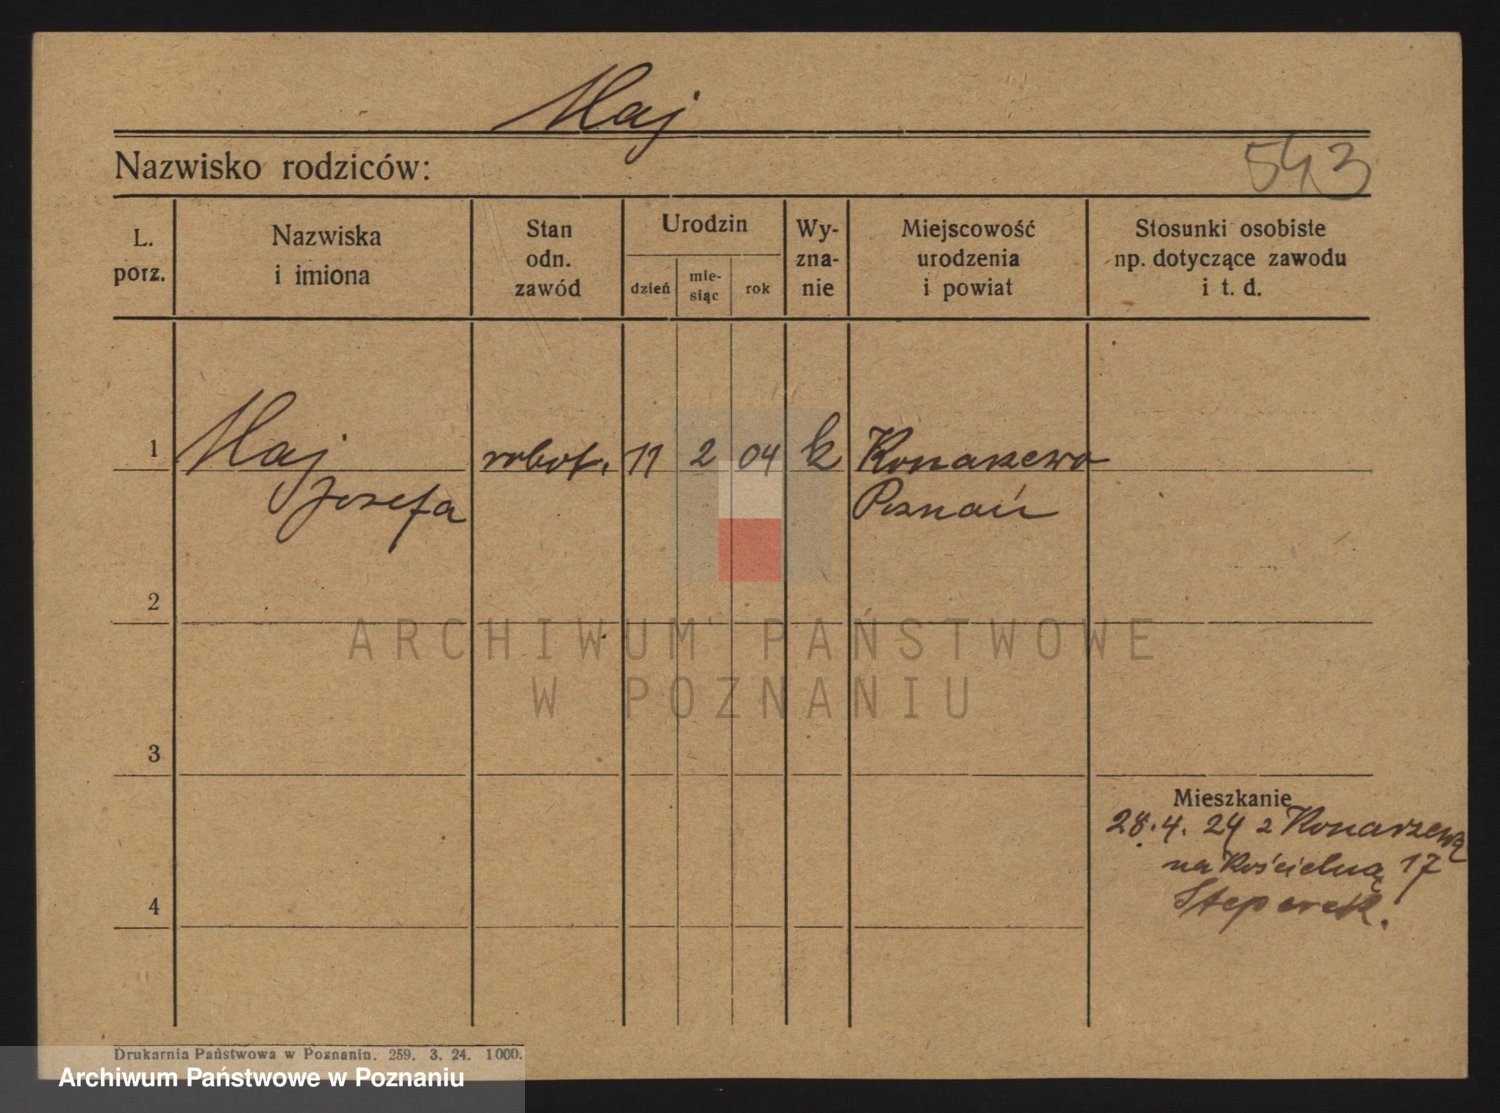 Maj
Nazwisko rodziców:
543
L. porz.
Nazwiska i imiona
Stan odn. zawód
Urodzin
dzień
mie-
siąc
rok
Wy-
zna-
nie
Miejscowość urodzenia i powiat
Stosunki osobiste
np. dotyczące zawodu
i t. d.
1 Maj robot. 11 2 04 k Konarzewo
Josefa Poznań
2
ARCHIWUM PAŃSTWOWE
W POZNANIU
3
Mieszkanie
28.4.24 z Konarzewa
na Kościelną 17
4
Drukarnia Państwowa w Poznaniu. 259. 3. 24. 1000.
Archiwum Państwowe w Poznaniu